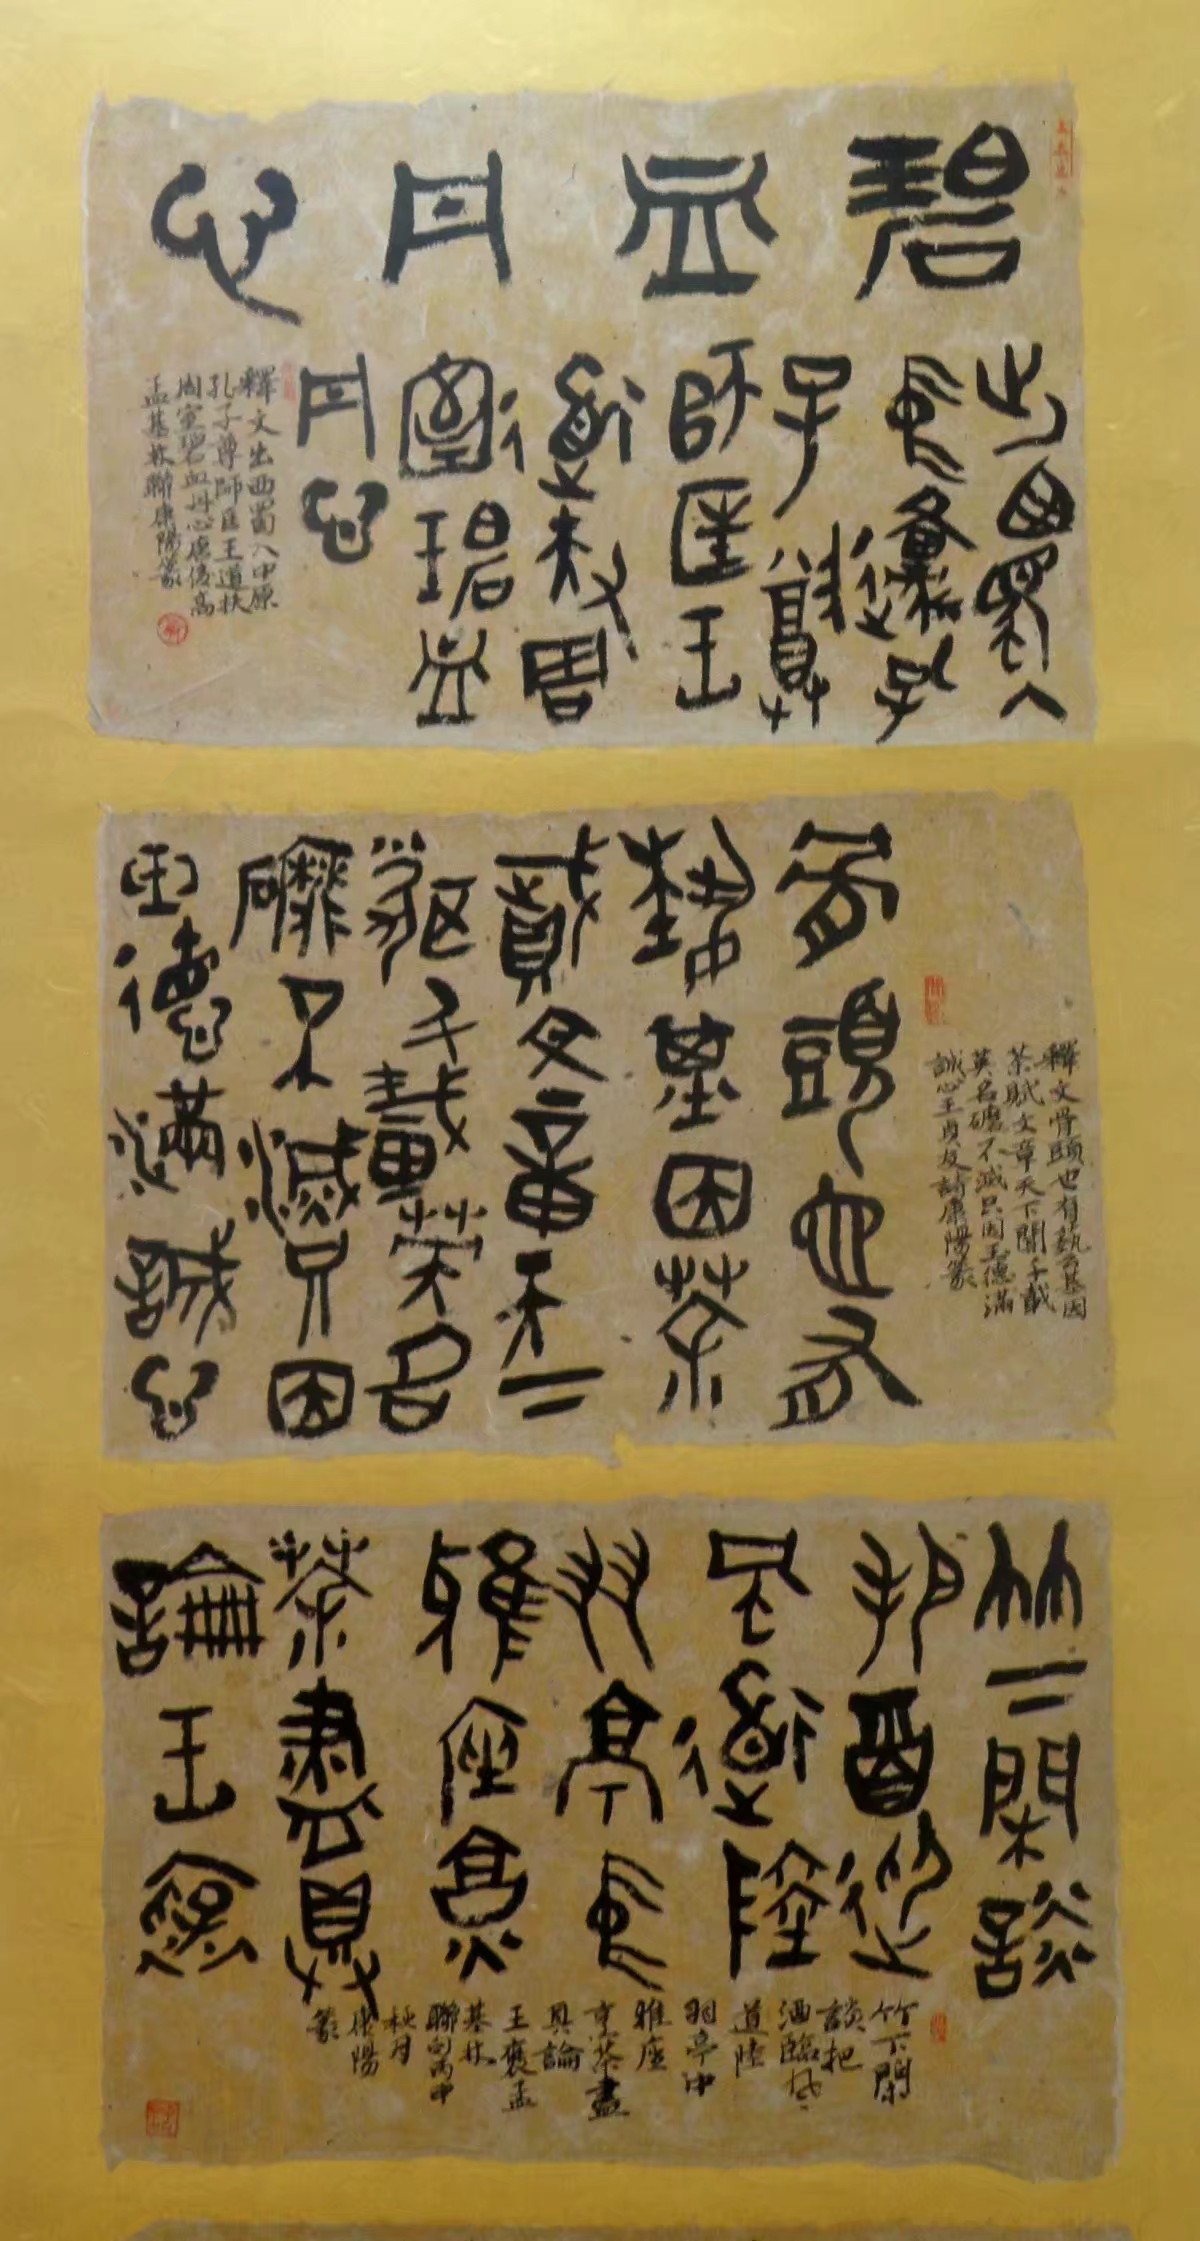 碧血丹心
出西蜀入
中原孔
子尊
師匡王
道扶周
室碧血
丹心
釋文出西蜀入中原
孔子尊師匡王道扶
周室碧血丹心唐俊高
孟基林聯康陽篆
釋文骨頭也有藝基因
茶賦文章天下聞千載
英名礳不滅只因玉德滿
誠心王貞友詩康陽篆
骨頭也有
藝基因茶
賦文章天下
聞千載英名
礳不滅只因
玉德滿誠心
竹下閑談
把酒臨
風道陸
羽亭中
雅座烹
茶盡具
論王褒
竹下閑
談把
酒臨風
道陸
羽亭中
雅座
烹茶盡
具論
王褒孟
基林
聯句丙申
秋月
康陽
篆